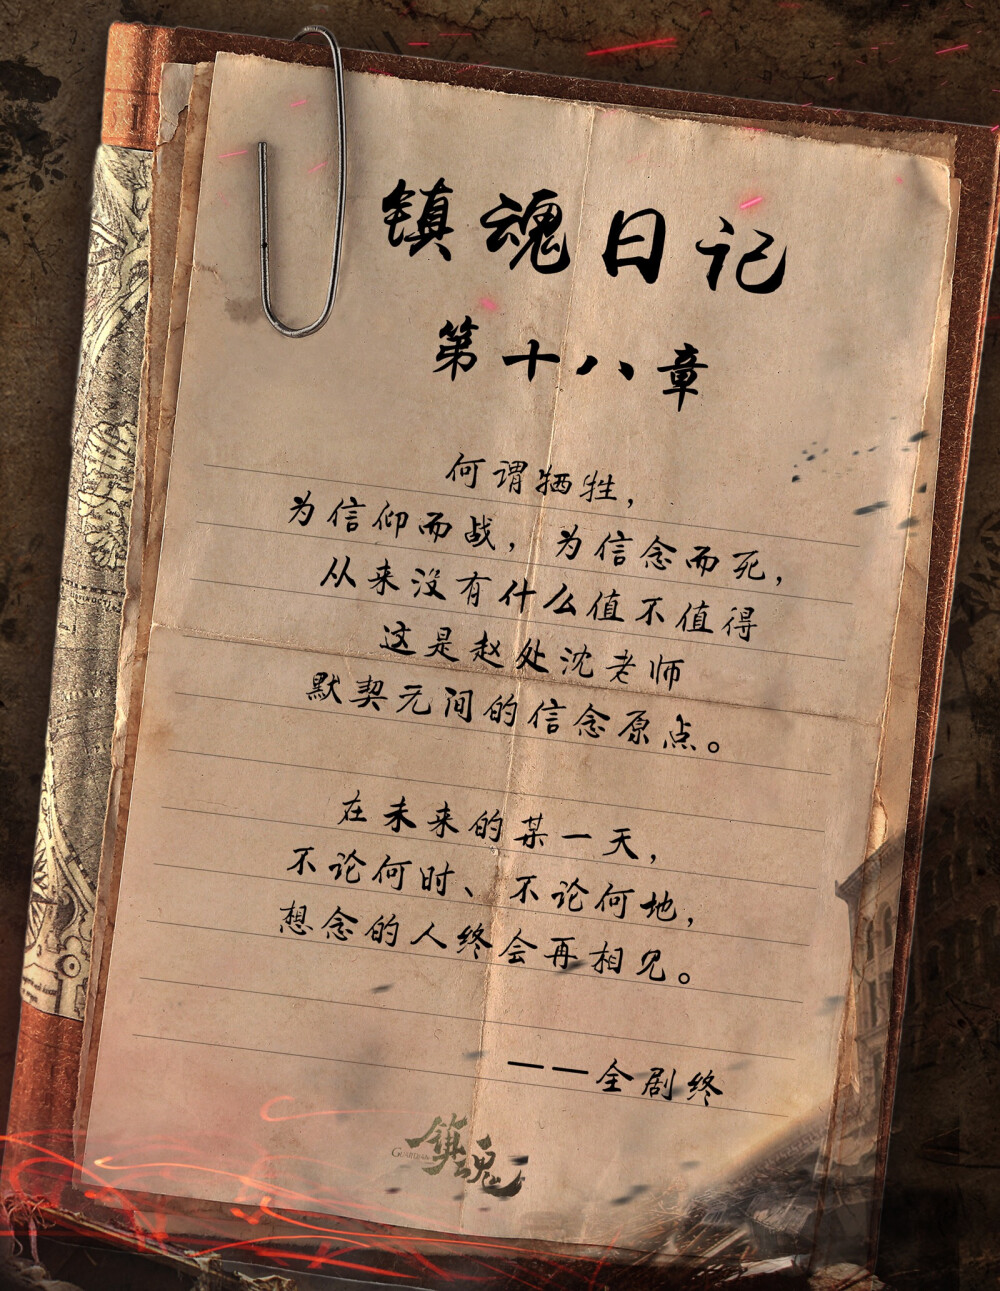 镇魂日记
第十八章
何谓牺牲，
为信仰而战，为信念而死，
从来没有什么值不值得
这是赵处沈老师
默契无间的信念原点。
在未来的某一天，
不论何时、不论何地，
想念的人终会再相见。
——全剧终
GUARDIAN 镇魂